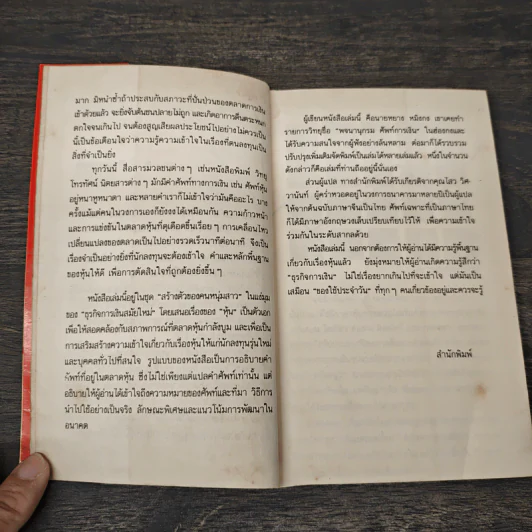 มาก มิหนำซ้ำถ้าประสบกับสภาวะที่ปั่นป่วนของตลาดการเงิน
เข้าตัวแล้ว จะยิ่งจับต้นชนปลายไม่ถูก และเกิดอาการตื่นตระหนก
ตกใจจนเกินไป จนต้องสูญเสียผลประโยชน์ไปอย่างไม่ควรเป็น
นี่เป็นข้อเตือนใจว่าความรู้ความเข้าใจในเรื่องที่ตนลงทุนเป็น
สิ่งที่จำเป็นยิ่ง
ทุกวันนี้ สื่อสารมวลชนต่างๆ เช่นหนังสือพิมพ์ วิทยุ
โทรทัศน์ นิตยสารต่างๆ มักมีคำศัพท์ทางการเงิน เช่น ศัพท์หุ้น
อยู่หนาหูหนาตา และหลายคำเราก็ไม่เข้าใจว่ามันคืออะไร บาง
ครั้งแม้แต่คนในวงการเองก็ยังงงได้เหมือนกัน ความก้าวหน้า
และการแข่งขันในตลาดหุ้นที่ดุเดือดขึ้นเรื่อยๆ การเคลื่อนไหว
เปลี่ยนแปลงของตลาดเป็นไปอย่างรวดเร็วนาทีต่อนาที จึงเป็น
เรื่องจำเป็นอย่างยิ่งที่นักลงทุนจะต้องเข้าใจ คำและหลักพื้นฐาน
ของหุ้นให้ดี เพื่อการตัดสินใจที่ถูกต้องยิ่งขึ้นๆ
หนังสือเล่มนี้อยู่ในชุด “สร้างตัวของคนหนุ่มสาว” ในแง่มุม
ของ “ธุรกิจการเงินสมัยใหม่” โดยเสนอเรื่องของ “หุ้น” เป็นตัวเอก
เพื่อให้สอดคล้องกับสภาพการณ์ที่ตลาดหุ้นกำลังบูม และเพื่อเป็น
การเสริมสร้างความเข้าใจเกี่ยวกับเรื่องหุ้นให้แก่นักลงทุนรุ่นใหม่
และบุคคลทั่วไปที่สนใจ รูปแบบของหนังสือเป็นการอธิบายคำ
ศัพท์ที่อยู่ในตลาดหุ้น ซึ่งไม่ใช่เพียงแต่แปลคำศัพท์เท่านั้น แต่
อธิบายให้ผู้อ่านได้เข้าใจถึงความหมายของศัพท์และที่มา วิธีการ
นำไปใช้อย่างเป็นจริง ลักษณะพิเศษและแนวโน้มการพัฒนาใน
อนาคต
ผู้เขียนหนังสือเล่มนี้ คือนายหยาง หมิงกง เขาเคยทำ
รายการวิทยุชื่อ “พจนานุกรม ศัพท์การเงิน” ในฮ่องกงและ
ได้รับความสนใจจากผู้ฟังอย่างล้นหลาม ต่อมาก็ได้รวบรวม
ปรับปรุงเพิ่มเติมจัดพิมพ์เป็นเล่มได้หลายเล่มแล้ว หนึ่งในจำนวน
ดังกล่าวก็คือเล่มที่ท่านถืออยู่นี้นั่นเอง
ส่วนผู้แปล ทางสำนักพิมพ์ได้รับเกียรติจากคุณไสว วิศ-
วานันท์ ผู้คร่ำหวอดอยู่ในวงการธนาคารมาหลายปีเป็นผู้แปล
ให้จากต้นฉบับภาษาจีนเป็นไทย ศัพท์เฉพาะที่เป็นภาษาไทย
ก็ได้มีภาษาอังกฤษวงเล็บเปรียบเทียบไว้ให้ เพื่อความเข้าใจ
ร่วมกันในระดับสากลด้วย
หนังสือเล่มนี้ นอกจากต้องการให้ผู้อ่านได้มีความรู้พื้นฐาน
เกี่ยวกับเรื่องหุ้นแล้ว ยังมุ่งหมายให้ผู้อ่านเกิดความรู้สึกว่า
“ธุรกิจการเงิน” ไม่ใช่เรื่องยากเกินไปที่จะเข้าใจ แต่มันเป็น
เสมือน “ของใช้ประจำวัน” ที่ทุกๆ คนเกี่ยวข้องอยู่และควรจะรู้
สำนักพิมพ์